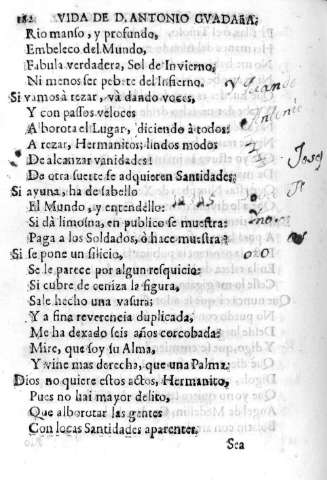 182 VIDA DE D. ANTONIO GVADAñA;
Rio manso, y profundo,
Embeleco del Mundo,
Fabula verdadera, Sol de Invierno,
Ni menos ser pebete del Infierno.
Si vamos à rezar, và dando voces,
Y con passos veloces
Alborota el Lugar, diciendo à todos:
A rezar, Hermanitos; lindos modos
De alcanzar vanidades!
De otra suerte se adquieren Santidades;
Si ayuna, ha de sabello
El Mundo, y entendello:
Si dà limosna, en publico se muestra:
Paga a los Soldados, ò hace muestra?
Si se pone un silicio,
Se le parece por algun resquicio:
Si cubre de ceniza la figura,
Sale hecho una vasura;
Y a fina reverencia duplicada,
Me ha dexado seis años corcobada:
Mire, que soy su Alma,
Y vine mas derecha, que una Palma.
Dios no quiere estos actos, Hermanito,
Pues no hai mayor delito,
Que alborutar las gentes
Con locas Santidades aparentes.
Sea
Josef